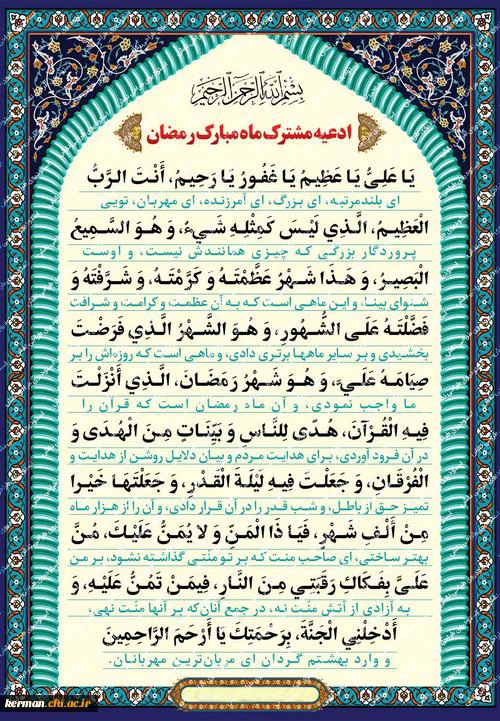 بِسْمِ اللَّهِ الرَّحْمَنِ الرَّحِيمِ
ادعیه مشترک ماه مبارک رمضان
يَا عَلِيُّ يَا عَظِيمُ يَا غَفُورُ يَا رَحِيمُ، أَنْتَ الرَّبُّ
ای بلندمرتبه، ای بزرگ، ای آمرزنده، ای مهربان، تویی
الْعَظِيمُ، الَّذِي لَيْسَ كَمِثْلِهِ شَيْءٌ، وَ هُوَ السَّمِيعُ
پروردگار بزرگی که چیزی همانندش نیست، و اوست
الْبَصِيرُ، وَ هَذَا شَهْرٌ عَظَّمْتَهُ وَ كَرَّمْتَهُ، وَ شَرَّفْتَهُ وَ
شنوای بینا، و این ماهی است که به آن عظمت و کرامت و شرافت
فَضَّلْتَهُ عَلَى الشُّهُورِ، وَ هُوَ الشَّهْرُ الَّذِي فَرَضْتَ
بخشیدی و بر سایر ماهها برتری دادی، و ماهی است که روزه‌اش را بر
صِيَامَهُ عَلَيَّ، وَ هُوَ شَهْرُ رَمَضَانَ، الَّذِي أَنْزَلْتَ
ما واجب نمودی، و آن ماه رمضان است که قرآن را
فِيهِ الْقُرْآنَ، هُدًى لِلنَّاسِ وَ بَيِّنَاتٍ مِنَ الْهُدَى وَ
در آن فرود آوردی، برای هدایت مردم و بیان دلایل روشن از هدایت و
الْفُرْقَانِ، وَ جَعَلْتَ فِيهِ لَيْلَةَ الْقَدْرِ، وَ جَعَلْتَهَا خَيْرا
تمیز حق از باطل، و شب قدر را در آن قرار دادی، و آن را از هزار ماه
مِنْ أَلْفِ شَهْرٍ، فَيَا ذَا الْمَنِّ وَ لا يُمَنُّ عَلَيْكَ، مُنَّ
بهتر ساختی، ای صاحب منت که بر تو منّتی گذاشته نشود، بر من
عَلَيَّ بِفَكَاكِ رَقَبَتِي مِنَ النَّارِ، فِيمَنْ تَمُنُّ عَلَيْهِ، وَ
به آزادی از آتش منّت نه، در جمع آنان‌که بر آنها منّت نهی،
أَدْخِلْنِي الْجَنَّةَ، بِرَحْمَتِكَ يَا أَرْحَمَ الرَّاحِمِينَ
و وارد بهشتم گردان ای مهربان‌ترین مهربانان.
kerman.cfu.ac.ir